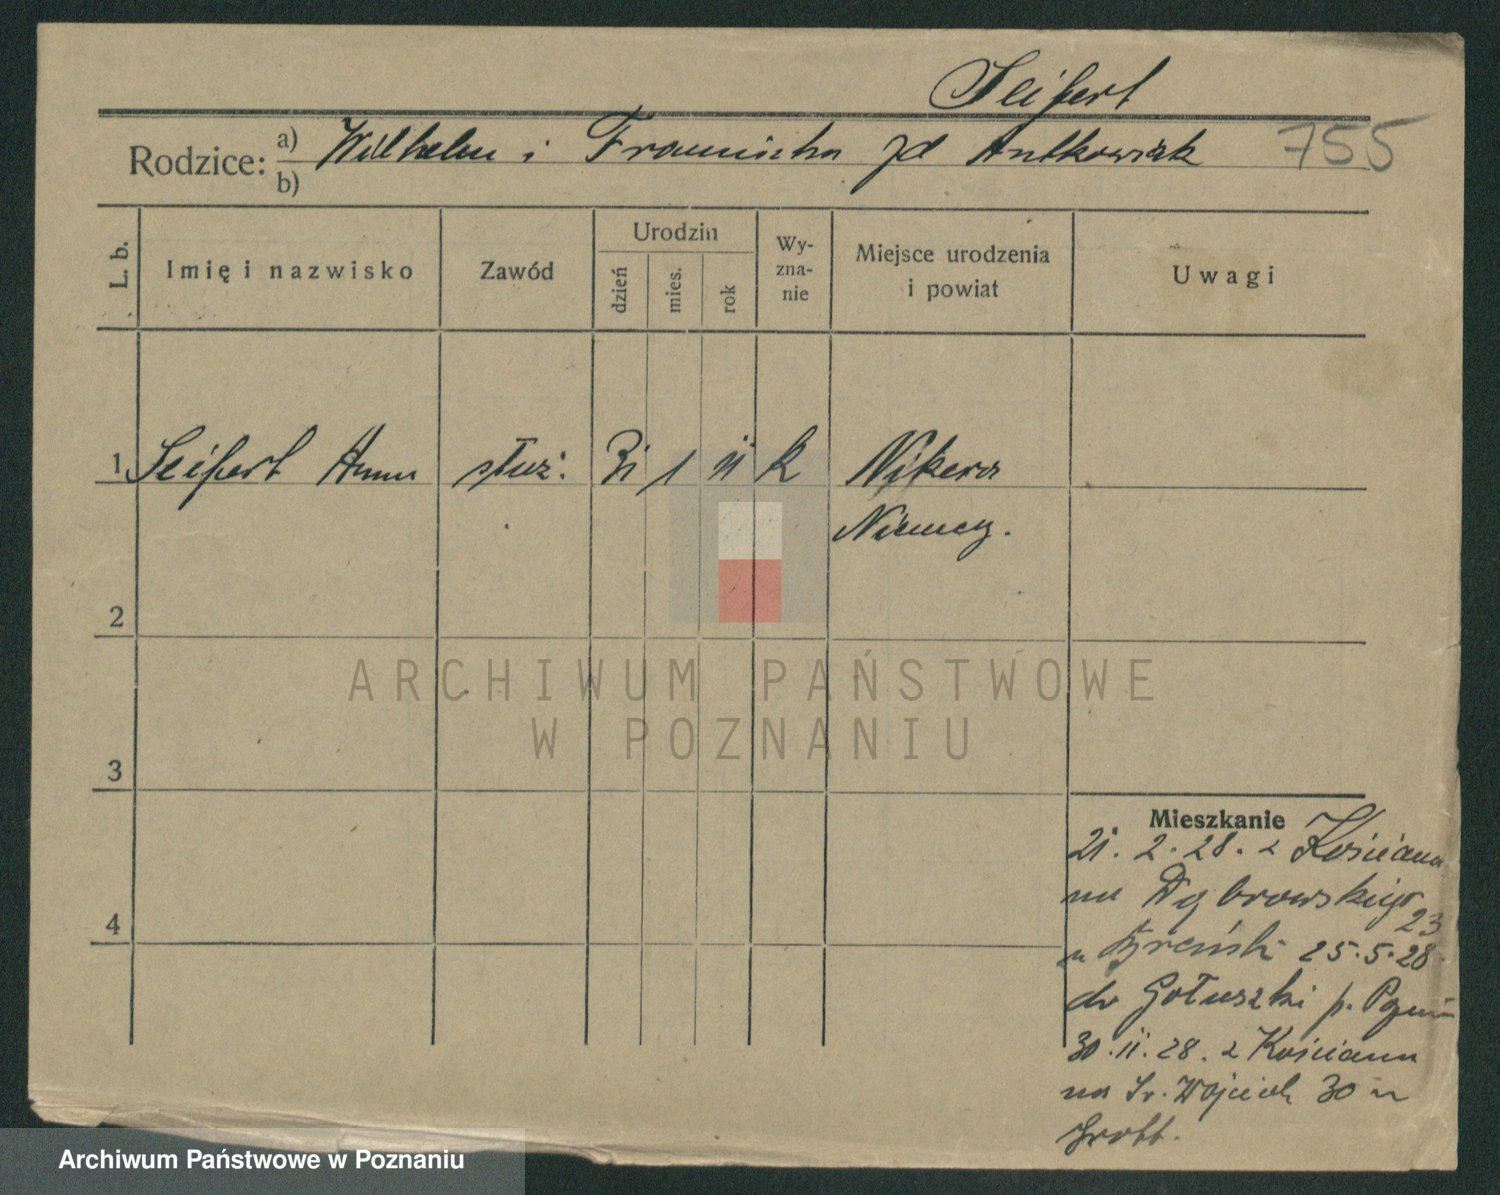 Seifert
Rodzice: a) Wilhelm i Franciszka zd Antkowiak 755
b)
L. b.
Imię i nazwisko
Zawód
Urodzin
dzień
mies.
rok
Wy-
zna-
nie
Miejsce urodzenia
i powiat
Uwagi
1 Seifert Anna służ. 31 1 11 k Nikera
Niemcy.
2
3
4
Mieszkanie
21. 2. 28. z Kościana
na Dąbrowskiego
23
u 25.5.28
do Gołuszki p. Poznań
30.11.28. z Kościana
na Św. Wojciech 30 u
Grott.
ARCHIWUM PAŃSTWOWE
W POZNANIU
Archiwum Państwowe w Poznaniu